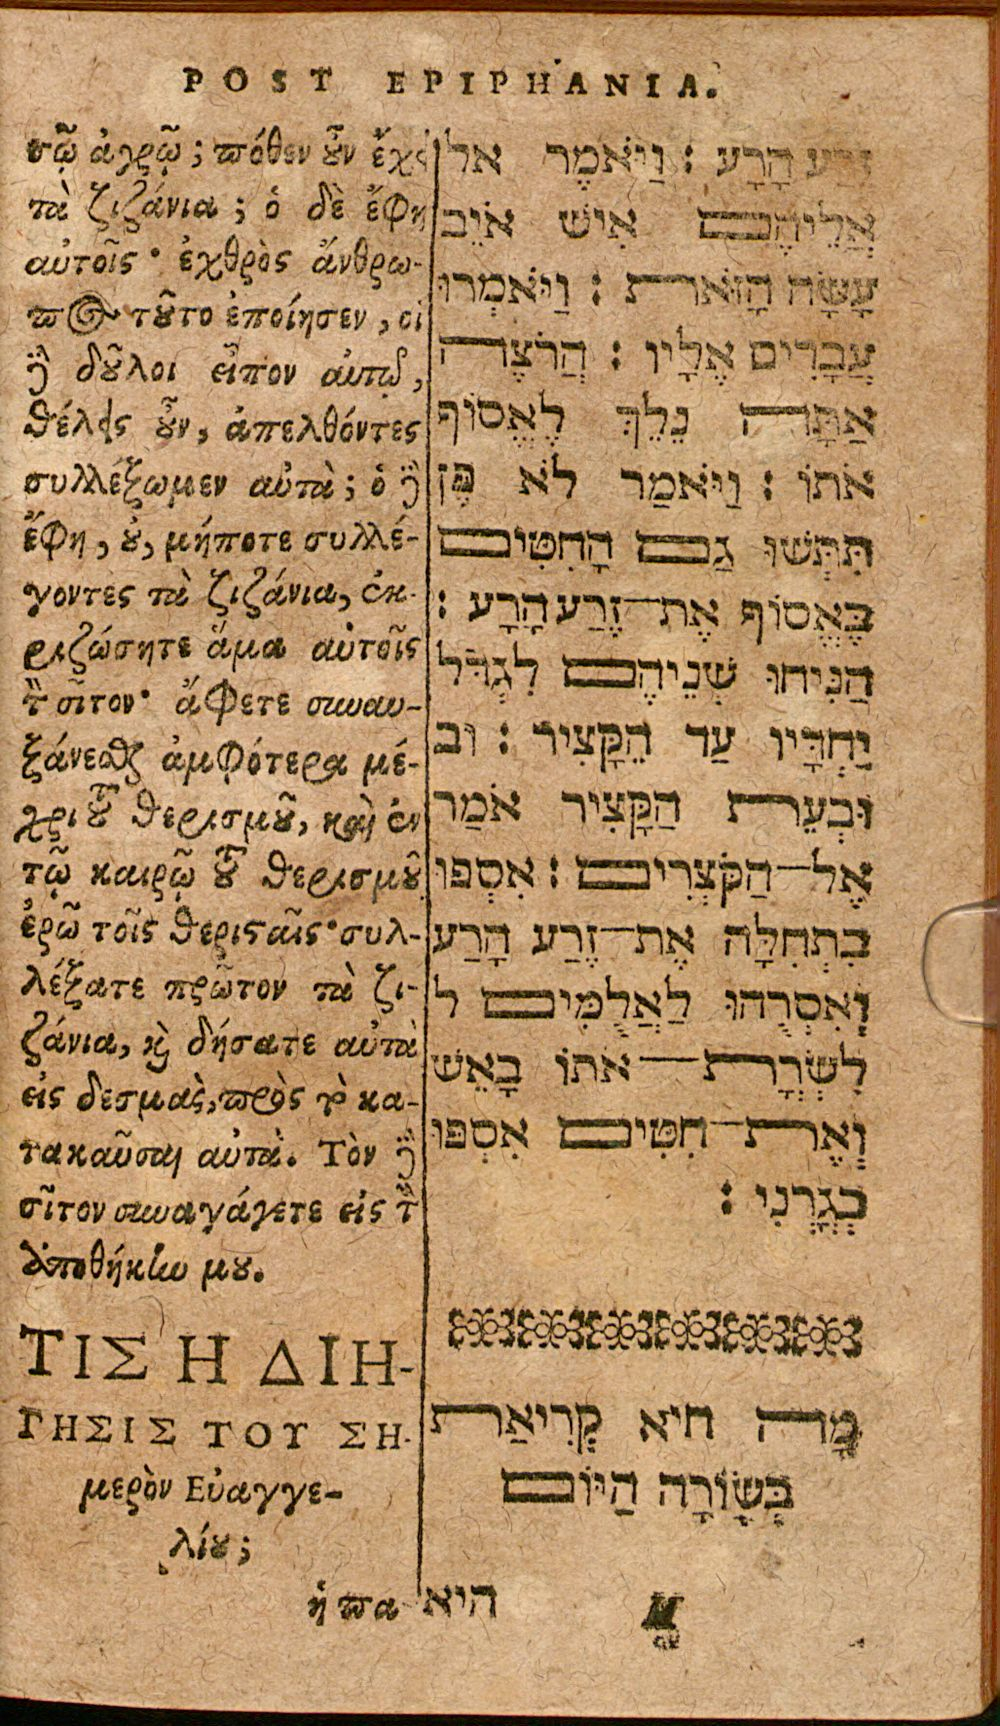 POST EPIPHANIA.
τῷ ἀγρῷ; πόθεν οὖν ἔχει
τὰ ζιζάνια; ὁ δὲ ἔφη
αὐτοῖς· ἐχθρὸς ἄνθρω-
πος τοῦτο ἐποίησεν, οἱ
δὲ δοῦλοι εἶπον αὐτῷ,
θέλεις οὖν, ἀπελθόντες
συλλέξωμεν αὐτὰ; ὁ δὲ
ἔφη, οὐ, μήποτε συλλέ-
γοντες τὰ ζιζάνια, ἐκ-
ριζώσητε ἅμα αὐτοῖς
τὸν σῖτον· ἄφετε συναυ-
ξάνεσθαι ἀμφότερα μέ-
χρι τοῦ θερισμοῦ, καὶ ἐν
τῷ καιρῷ τοῦ θερισμοῦ
ἐρῶ τοῖς θερισταῖς· συλ-
λέξατε πρῶτον τὰ ζι-
ζάνια, καὶ δήσατε αὐτὰ
εἰς δεσμὰς, πρὸς τὸ κα-
τακαῦσαι αὐτὰ. Τὸν δὲ
σῖτον συναγάγετε εἰς τὴν
ἀποθήκην μου.
ΤΙΣ Η ΔΙΗ-
ΓΗΣΙΣ ΤΟΥ ΣΗ-
μερὸν Εὐαγγε-
λίου;
ἡ πα
זרע הָרָע : וַיֹּאמֶר אל
אֲלֵיהֶם אִישׁ אֹיֵב
עָשָׂה הָזֹּאת : וַיֹּאמְרוּ
עֲבָרִים אֵלָיו : הֲרֹצֶה
אַתָּה נֵלֵךְ לֶאֱסוֹף
אֹתוֹ : וַיֹּאמַר לֹא פֶּן
תִּתְּשׁוּ גַם הָחִטִּים
בֶּאֱסוֹף אֶת־זֶרַע הָרָע :
הַנִּיחוּ שְׁנֵיהֶם לִגְדֹּל
יַחְדָּיו עַד הַקָּצִיר : וב
וּבְעֵת הַקָּצִיר אֹמַר
אֶל־הַקֹּצְרִים : אִסְפוּ
בִתְחִלָּה אֶת־זֶרַע הָרַע
וְאִסְרֻהוּ לַאֲלֻמִּים ל
לִשְׂרָת־אֹתוֹ בָאֵשׁ
וְאֶת־חִטִּים אִסְפוּ
בְגָרְנִי :
מָה היא קְרִיאַת
בְּשׂוֹרָה הַיּוֹם
היא
M